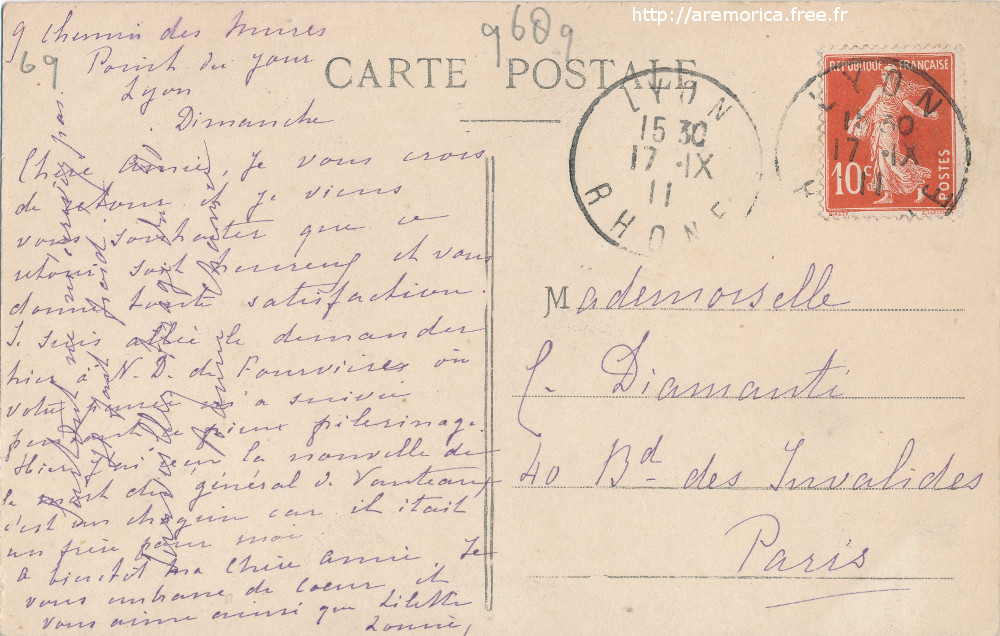 http://aremorica.free.fr
9 Chemin des
69
Point du jour
Lyon
Dimanche
9689
CARTE POSTALE
LYON
15 30
17 - IX
11
RHONE
LYON
17 - IX
11
RÉPUBLIQUE FRANÇAISE
10c
POSTES
Chère amie, Je vous crois
de retour et je viens
vous souhaiter que ce
retour soit heureux et vous
donne toute satisfaction.
Je suis allée le demander
hier à N. D. de Fourvières où
votre pensée m'a suivie
pendant ce pieux pèlerinage.
Hier j'ai eu la nouvelle de
la mort du général de
c'est un chagrin car il était
un frère pour moi
A bientôt ma Chère amie Je
vous embrasse de coeur et
vous aime ainsi que Lilette
Mademoiselle
C. Diamanti
40 Bd des Invalides
Paris
pas.
Il fait froid